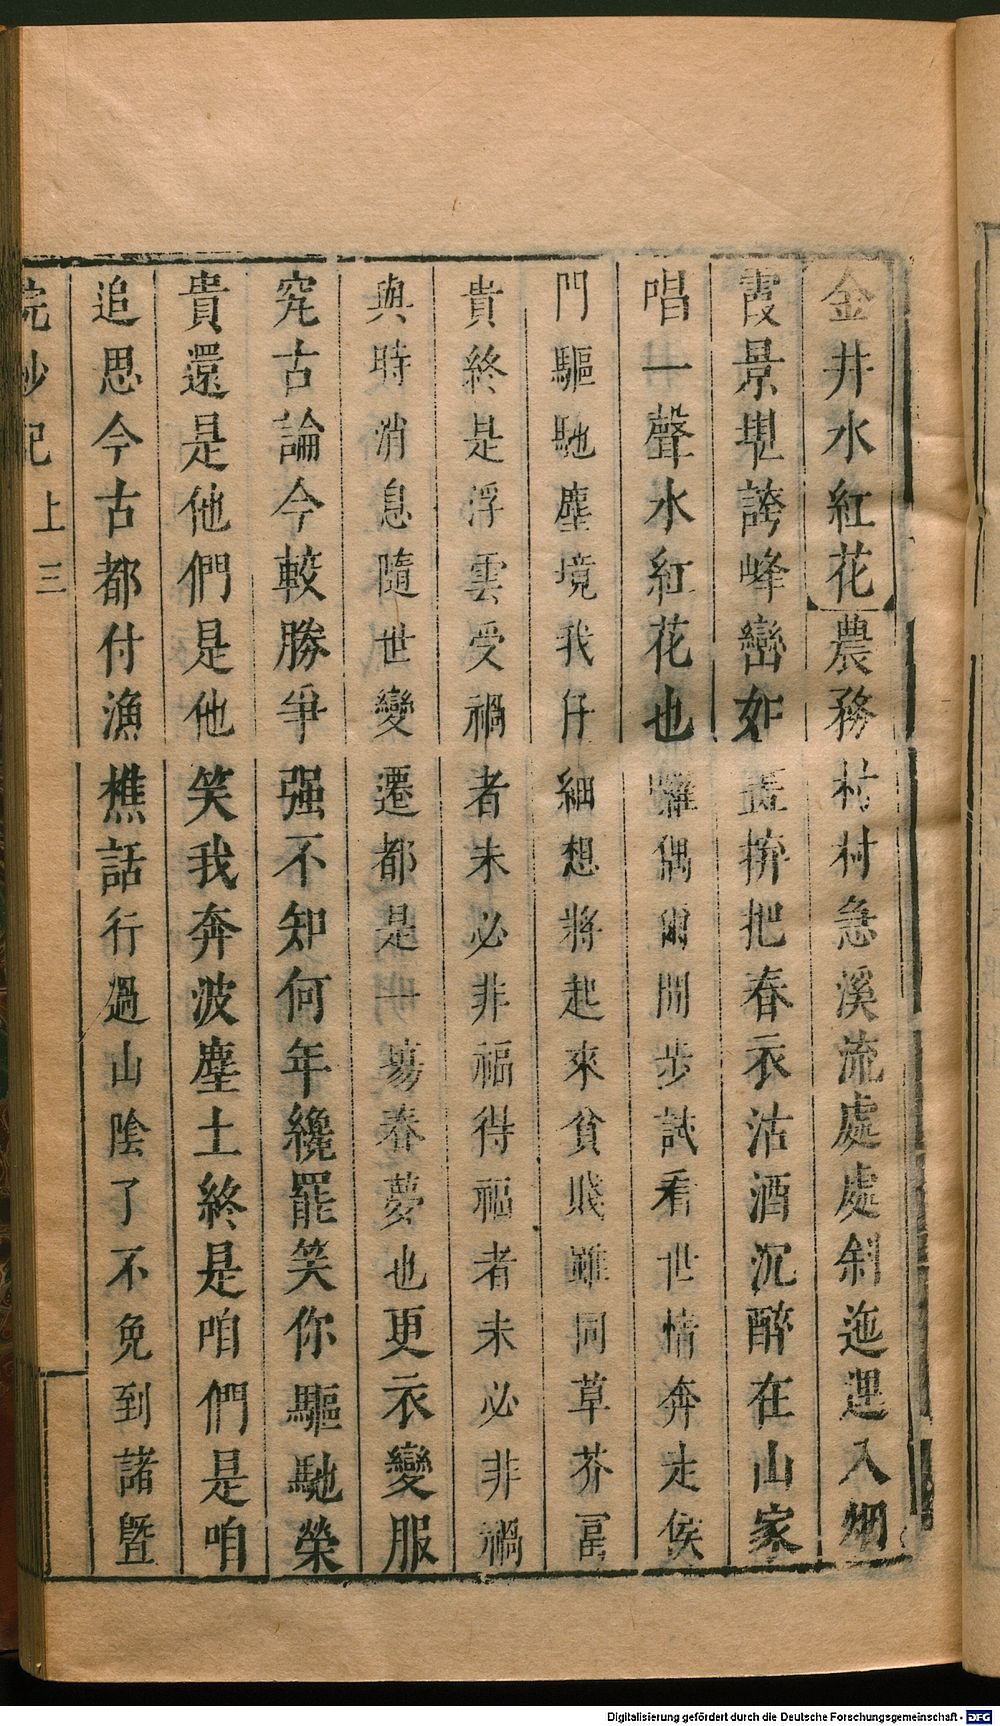 金井水紅花農務村村急溪流處處斜迤邐入烟
霞景堪誇峰巒如畫拚把春衣沽酒沉醉在山家
唱一聲水紅花也囉偶爾閒步試看世情奔走侯
門驅馳塵境我仔細想將起來貧賤雖同草芥冨
貴終是浮雲受禍者未必非福得福者未必非禍
與時消息隨世變遷都是一塲春夢也更衣變服
究古論今較勝爭强不知何年纔罷笑你驅馳榮
貴還是他們是他笑我奔波塵土終是咱們是咱
追思今古都付漁樵話行過山陰了不免到諸曁
浣紗記 上 三
Digitalisierung gefördert durch die Deutsche Forschungsgemeinschaft - DFG